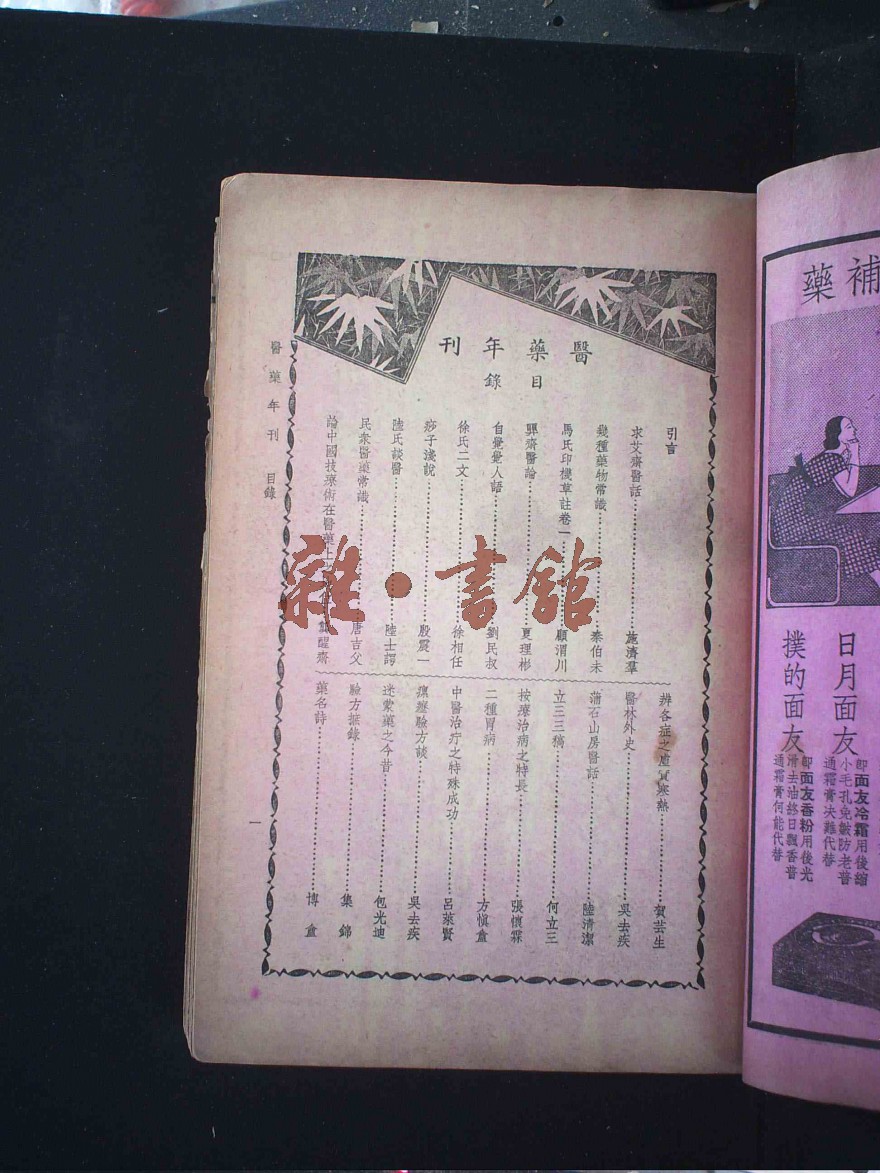 醫藥年刊
目錄
引言
求艾齋醫話 施濟羣
幾種藥物常識 秦伯未
馬氏印機草註卷一 顧渭川
驒齋醫論 夏理彬
自覺覺人語 劉民叔
徐氏二文 徐相任
痧子淺說 殷震一
陸氏談醫 陸士諤
民衆醫藥常識 唐吉父
論中國技療術在醫藥上 醒齋
辨各症之虛實寒熱 賀芸生
醫林外史 吳去疾
蒲石山房醫話 陸清潔
立三三稿 何立三
按療治病之特長 張懷霖
二種胃病 方愼盦
中醫治疔之特殊成功 呂萊賢
瘰癧驗方談 吳去疾
迷蒙藥之今昔 包光迪
驗方摭錄 集錦
藥名詩 博盦
醫藥年刊 目錄
一
雜·書館
補藥
日月面友
即面友冷霜用後縮
小毛孔免皺防老普
通霜膏决難代替
撲的面友
即面友香粉用後光
滑去油終日飄香普
通霜膏何能代替